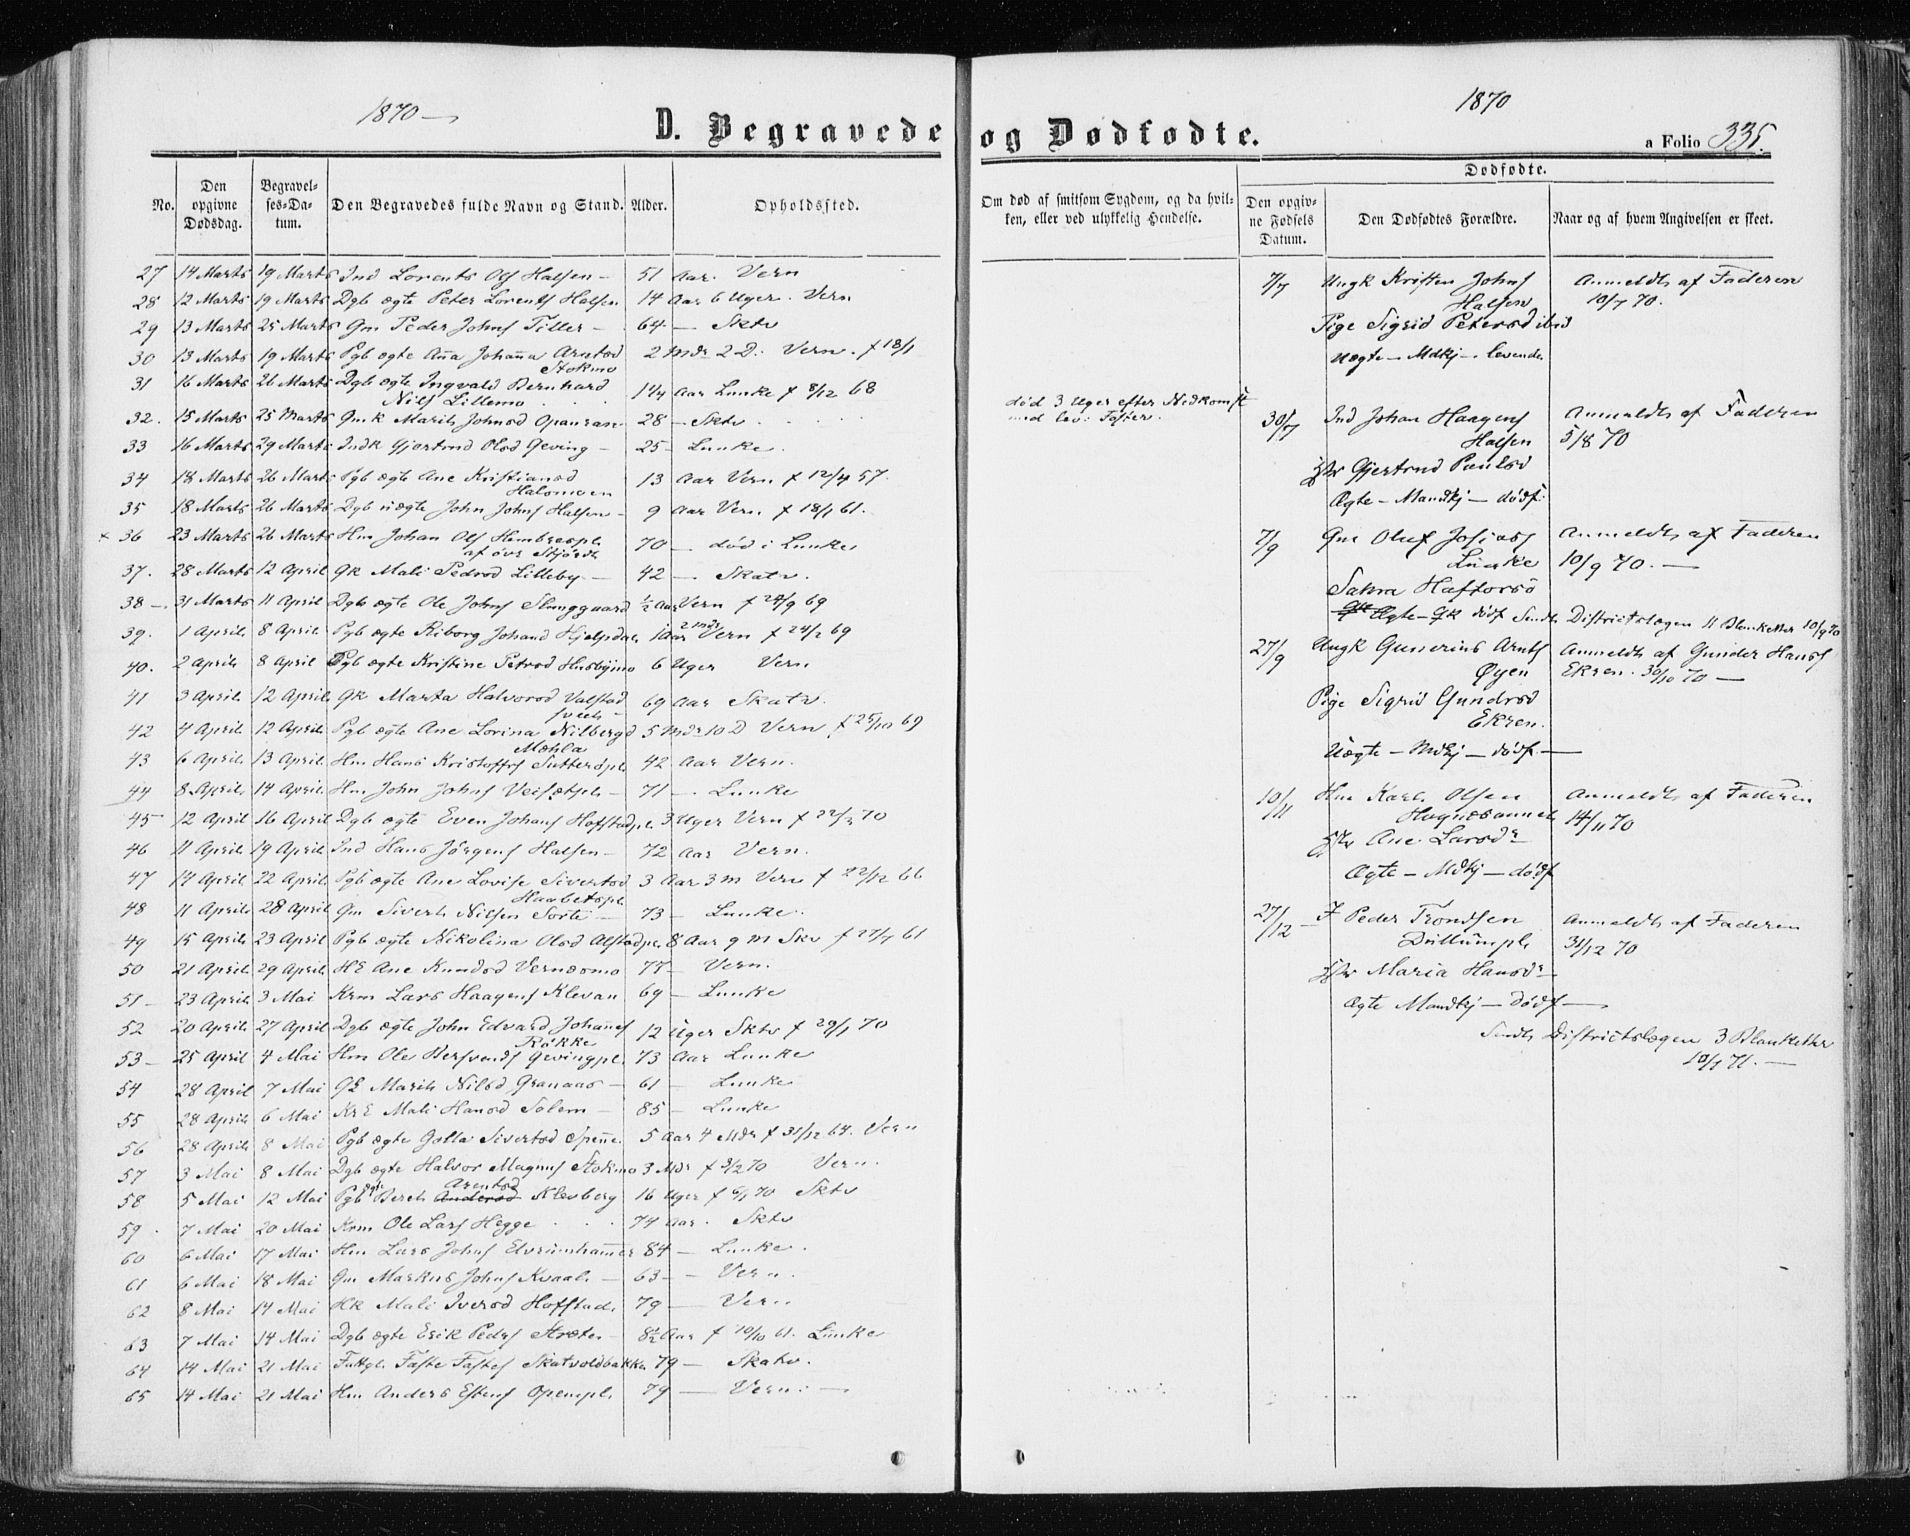 1870
D. Begravede
No.
Den opgivne Dødsdag.
Begravel-ses-Da-tum.
Den Begravedes fulde Navn og Stand.
Alder.
Opholdssted.
27 14 Marts 19 Marts Ind Lorents Ols Halsen - 51 Aar. Vern
28 12 Marts 19 Marts Dgb ægte Peter Lorents Halsen 14 Aar 6 Uger. Vern
29 13 Marts 25 Marts Gm Peder Johns Tiller - 64 - Sktv
30 13 Marts 19 Marts Pgb ægte Aña Johaña Arntsd 2 Mdr 2 D. Vern. f 18/1
Stokmo
31 16 Marts 26 Marts Dgb ægte Ingvald Bernhard 1 1/4 Aar Lunke f 8/12 68
Nils Lillemo
32. 15 Marts 25 Marts Gmk Marit Johnsd 28 - Sktv
33 16 Marts 29 Marts Indk Gjertrud Olsd Geving - 25 - Lunke.
34 18 Marts 26 Marts Pgb ægte Ane Kristiansd 13 Aar Vern f 12/4 57.
Halsmoen
35 18 Marts 26 Marts Dgb uægte John Johns Halsen - 9 Aar Vern f 18/1 61.
x 36 23 Marts 26 Marts Hm Johan Ols 70 - død i Lunke
af øvr Stjørd
37. 28 Marts 12 April Gk Mali Pedersd Lilleby - 42 - Skatv.
38 - 31 Marts 11 April Dgb ægte Ole Johns 1/2 Aar Vern f 24/9 69
39. 1 April 8 April Pgb ægte Kiborg Johansd Hjelpsdal 1 Aar 2 Mdr Vern f 24/2 69
40. 2 April 8 April Pgb ægte Kristine Petrsd Husbymo 6 Uger Vern
41 3 April 12 April Gk Marta Halvorsd Valstad 69 Aar Skatv.
42 4 April 12 April Pgb ægte Ane Lovina Nilbergd 5 Mdr 10 D Vern f 25/10 69
Mæhla
43 6 April 13 April Hm Hans Kristoffs Sutterøpl 42 Aar Vern.
44 8 April 14 April Hm John Johns Veisætpl - 71 - Lunke
45 12 April 16 April Dgb ægte Even Johans Hofstadpl 3 Uger Vern f 22/3 70
46 11 April 19 April Ind Hans Jörgens Halsen - 72 Aar Vern.
47 14 April 22 April Pgb ægte Ane Lovise Sivertsd 3 Aar 3 M Vern f 22/12 66
Haabetspl
48 11 April 28 April Gm Sivert Nilsen Sorte - 73 - Lunke.
49 15 April 23 April Pgb ægte Nikolina Olsd Alstadpl 8 Aar 9 M Skv f 27/7 61
50 21 April 29 April HE Ane Knudsd Vernesmo 77 - Vern.
51 - 23 April 3 Mai Krm Lars Haagens Klevan 69 - Lunke
52 20 April 27 April Dgb ægte John Edvard Johañes 12 Uger Sktv f 29/1 70
Røkke
53 - 25 April 4 Mai Hm Ole Bersvends Gevingpl. 73 Aar Lunke
54 28 April 7 Mai GE Marit Nilsd Granaas - 61 - Lunke
55 28 April 6 Mai KrE Mali Hansd Solem - 85 - Lunke
56 28 April 8 Mai Pgb ægte Golla Sivertsd Speñe. 5 Aar 4 Mdr f 31/12 64. Vern
57 3 Mai 8 Mai Dgb ægte Halvor Magnus Stokmo 3 Mdr f 3/2 70 Vern.
58 5 Mai 12 Mai Pgb ægte Beret Andersd Arentsd Klevberg 16 Uger f 6/1 70 Sktv
59. 7 Mai 20 Mai Krm Ole Lars Hegge 74 Aar. Sktv
60 6 Mai 17 Mai Hm Lars Johns Elvrumhamer 84 - Lunke.
61 6 Mai 18 Mai Gm Markus Johns Kvaal - 63 - Vern.
62 8 Mai 14 Mai Hk Mali Iversd Hofstad. 79 - Vern
63 7 Mai 14 Mai Dgb ægte Erik Peders Stræte - 8 1/2 Aar f 10/10 61. Lunke
64 14 Mai 21 Mai Faste Fastes Skatvoldbakke 79 - Skatv.
65 14 Mai 21 Mai Hm Anders Estens Opempl. 79 - Vern. -
1870
og Dødfødte.
a Folio 335.
Om død af smitsom Sygdom, og da hvil-ken, eller ved ulykkelig Hendelse.
Dødfødte.
Den opgiv-ne Fødsels Datum.
Den Dødfødtes Forældre.
Naar og af hvem Angivelsen er skeet.
død 3 Uger efter Nedkomst
med lev. Foster.
7/7 Ungk Kristen Johns Anmeldt af Faderen
Halsen 10/7 70.
Pige Sigrid Petersd ibid
Uægte - Mdkj - levende
30/7 Ind Johan Haagens Anmeldt af Faderen
Halsen 5/8 70
Hstr Gjertrud Paulsd
Ægte - Mandkj - dødf.
7/9 Gm Oluf Josias Anmeldt af Faderen
Lunke 10/9 70. -
Sahra Haftorsd
Ægte - Qk dødf Sendt Districtslægen 11 Blanketter 10/9 70
27/9 Ungk Gunerius Arnts Anmeldt af Gunder Hans
Øyen Ekren. 30/10 70 -
Pige Sigrid Gundersd
Ekren.
Uægte - Mdkj - dødf -
10/11 Hm Karl Olsen Anmeldt af Faderen
14/11 70
Hstr Ane Larsdr
Ægte - Mdkj - dødf
27/12 - I Peder Trondsen Anmeldt af Faderen
Drillumpl. 31/12 70
Hstr Maria Hansdr
Ægte Mandkj - Dødf -
Sendt Districtslægen 3 Blanketter
10/1 71. -